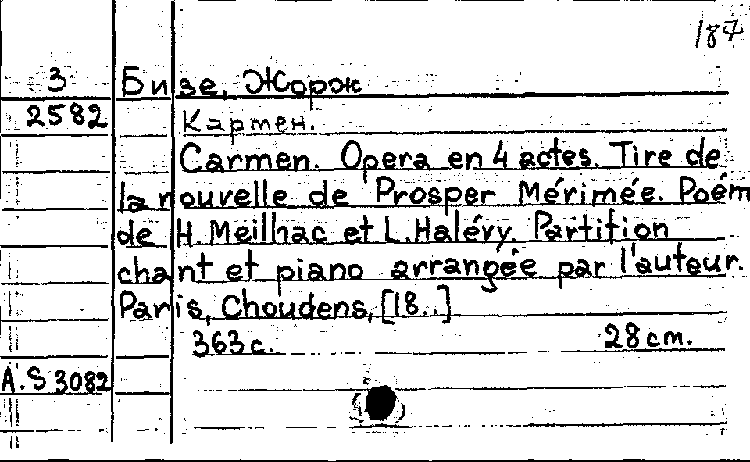 187
3 Бизе, Жорж
2582 Кармен.
Carmen. Opera en 4 actes. Tire de
la nouvelle de Prosper Mérimée. Poém
de H. Meilhac et L. Halévy. Partition
chant et piano arrangée par l'auteur.
Paris, Choudens, [18..]
363 с. 28 cm.
A.S 3082